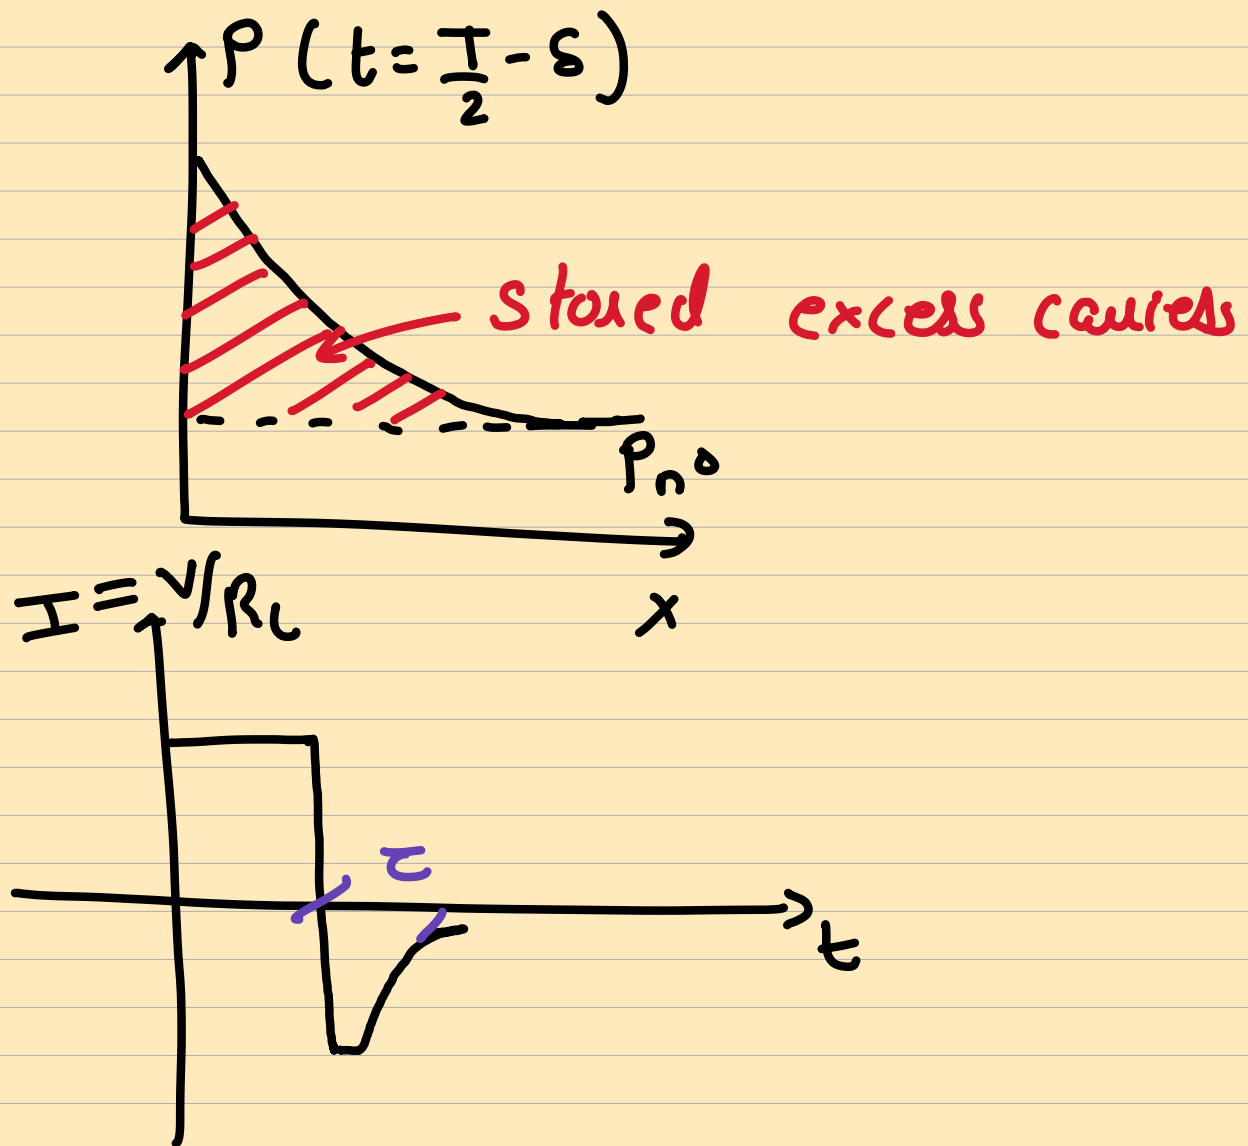 P (t = T/2 - δ)
stored excess carriers
Pno
x
I = V/RL
τ
t